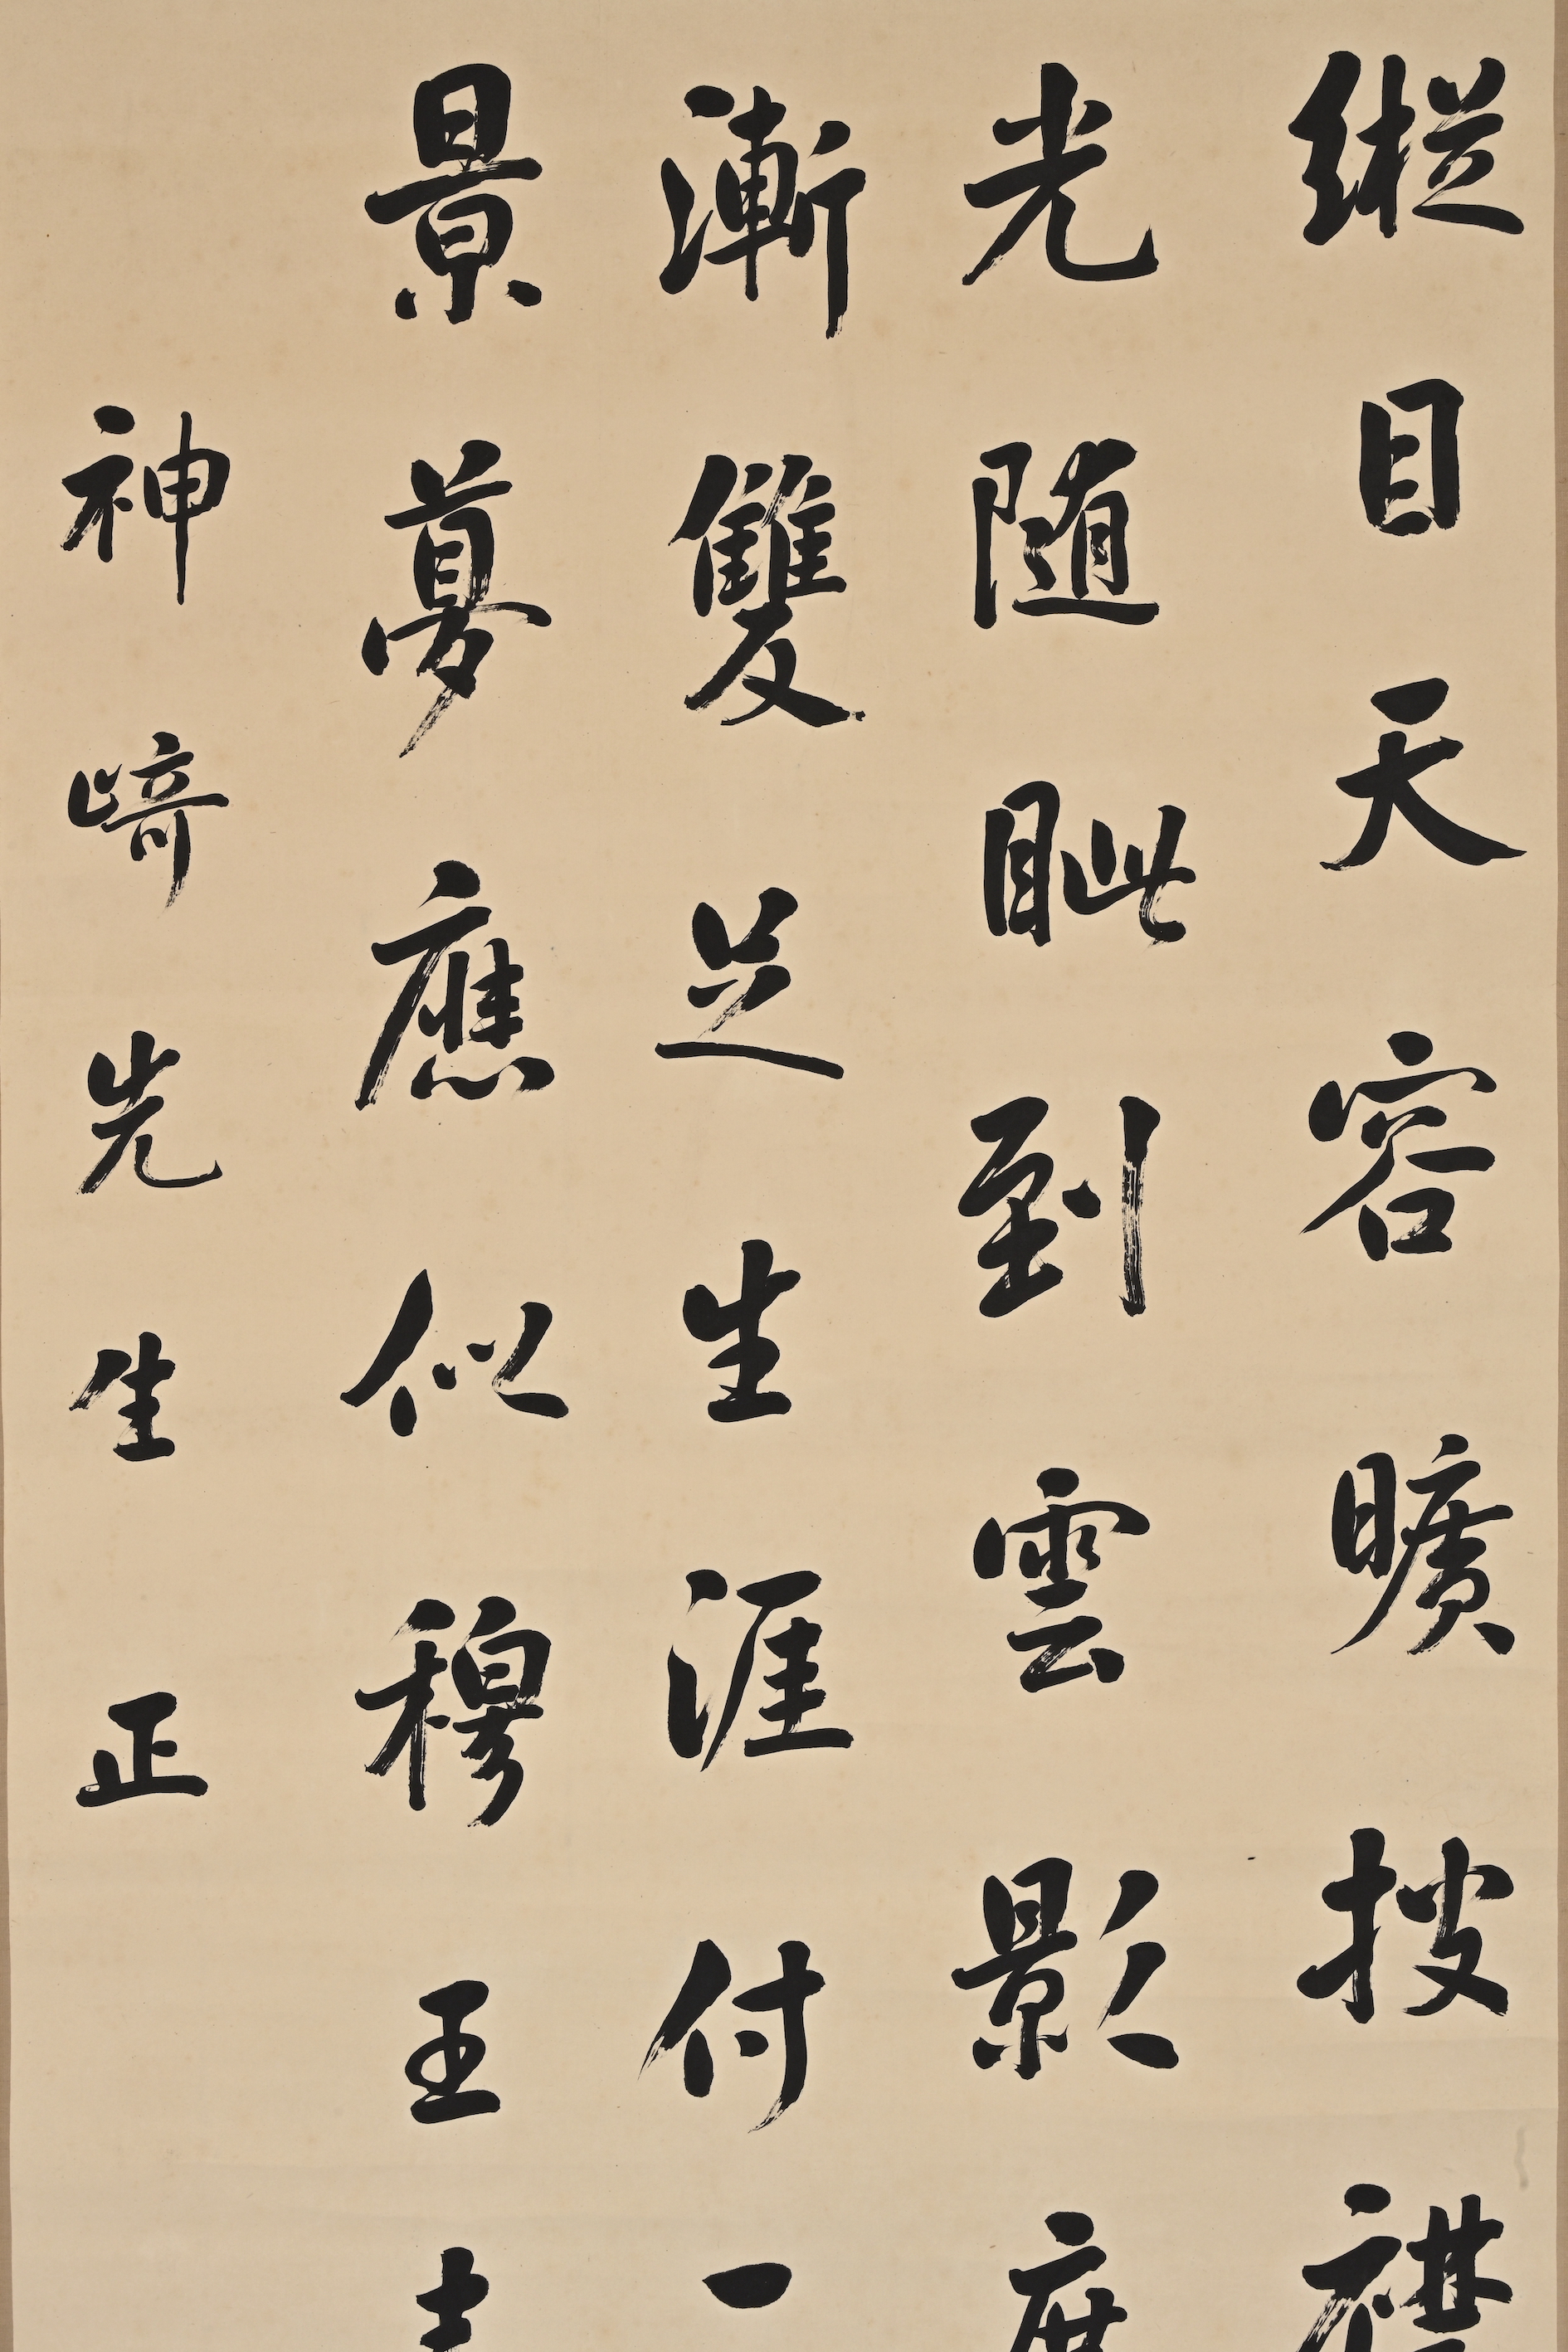 縱目天容曠披襟
光随眦到雲影
漸雙足生涯付一
景夢應似穆王
神﨑先生正